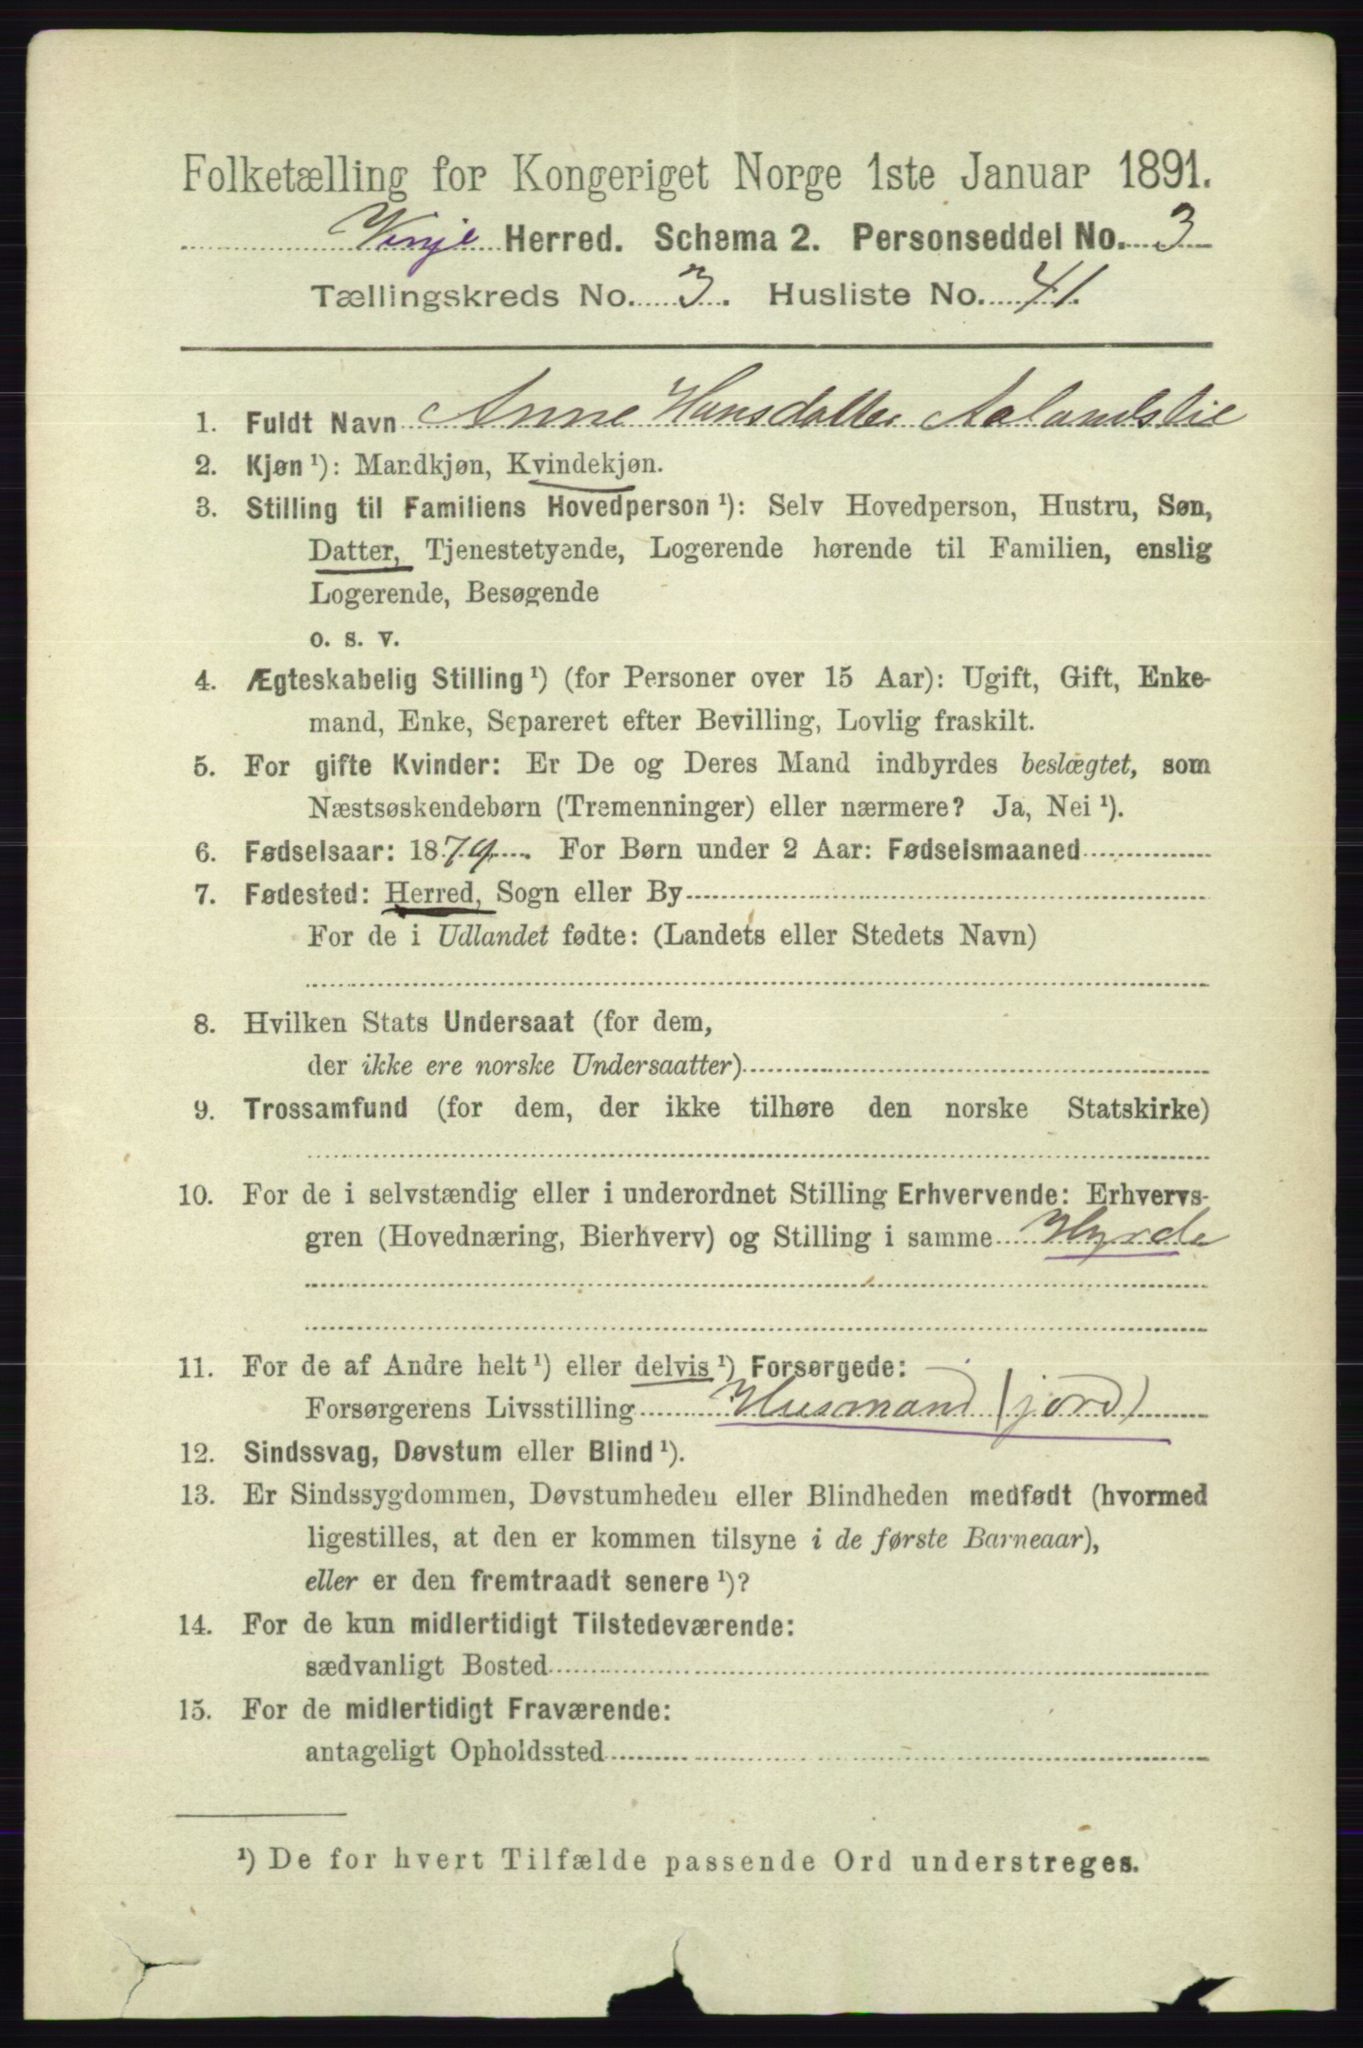 Folketælling for Kongeriget Norge 1ste Januar 1891.
Vinje Herred. Schema 2. Personseddel No. 3
Tællingskreds No. 3. Husliste No. 41.
1. Fuldt Navn Anne Hansdatter Aalandslie
2. Kjøn¹): Mandkjøn, Kvindekjøn.
3. Stilling til Familiens Hovedperson¹): Selv Hovedperson, Hustru, Søn,
Datter, Tjenestetyende, Logerende hørende til Familien, enslig
Logerende, Besøgende
o. s. v.
4. Ægteskabelig Stilling¹) (for Personer over 15 Aar): Ugift, Gift, Enke-
mand, Enke, Separeret efter Bevilling, Lovlig fraskilt.
5. For gifte Kvinder: Er De og Deres Mand indbyrdes beslægtet, som
Næstsøskendebørn (Tremenninger) eller nærmere? Ja, Nei¹).
6. Fødselsaar: 1879. For Børn under 2 Aar: Fødselsmaaned
7. Fødested: Herred, Sogn eller By
For de i Udlandet fødte: (Landets eller Stedets Navn)
8. Hvilken Stats Undersaat (for dem,
der ikke ere norske Undersaatter)
9. Trossamfund (for dem, der ikke tilhøre den norske Statskirke)
10. For de i selvstændig eller i underordnet Stilling Erhvervende: Erhvervs-
gren (Hovednæring, Bierhverv) og Stilling i samme Hyrde
11. For de af Andre helt¹) eller delvis¹) Forsørgede:
Forsørgerens Livsstilling Husmand (jord)
12. Sindssvag, Døvstum eller Blind¹).
13. Er Sindssygdommen, Døvstumheden eller Blindheden medfødt (hvormed
ligestilles, at den er kommen tilsyne i de første Barneaar),
eller er den fremtraadt senere¹)?
14. For de kun midlertidigt Tilstedeværende:
sædvanligt Bosted
15. For de midlertidigt Fraværende:
antageligt Opholdssted
¹) De for hvert Tilfælde passende Ord understreges.